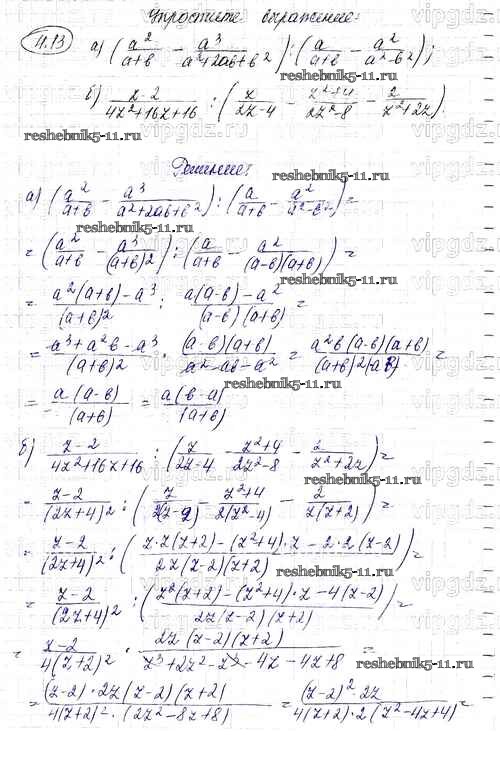 Упростите выражение:
4.13 а) (a²/(a+b) − a³/(a²+2ab+b²)) : (a/(a+b) − a²/(a²−b²));
б) (z−2)/(4z²+16z+16) : (z/(2z−4) − (z²+4)/(2z²−8) − 2/(z²+2z)).
reshebnik5-11.ru
Решение:
а) (a²/(a+b) − a³/(a²+2ab+b²)) : (a/(a+b) − a²/(a²−b²)) =
= (a²/(a+b) − a³/(a+b)2) : (a/(a+b) − a²/((a−b)(a+b))) =
= (a²(a+b)−a³)/(a+b)² : (a(a−b)−a²)/((a−b)(a+b)) =
= (a³+a²b−a³)/(a+b)2 · ((a−b)(a+b))/(a²−ab−a²) = (a²b(a−b)(a+b))/((a+b)2(ab)) =
= (a(a−b))/(a+b) = (a(b−a))/(a+b)
б) (z−2)/(4z²+16z+16) : (z/(2z−4) − (z²+4)/(2z²−8) − 2/(z²+2z)) =
= (z−2)/(2z+4)² : (z/(2(z−2)) − (z²+4)/(2(z²−4)) − 2/(z(z+2))) =
= (z−2)/(2z+4)² : ((z·z(z+2)−(z²+4)·z−2·2(z−2))/(2z(z−2)(z+2))) =
= (z−2)/(2z+4)² : ((z²(z+2)−(z²+4)·z−4(z−2))/(2z(z−2)(z+2))) =
= (z−2)/(4(z+2)²) · (2z(z−2)(z+2))/(z³+2z²−z³−4z−4z+8) =
= ((z−2)·2z(z−2)(z+2))/(4(z+2)²·(2z²−8z+8)) = ((z−2)²·2z)/(4(z+2)·2(z²−4z+4)) =